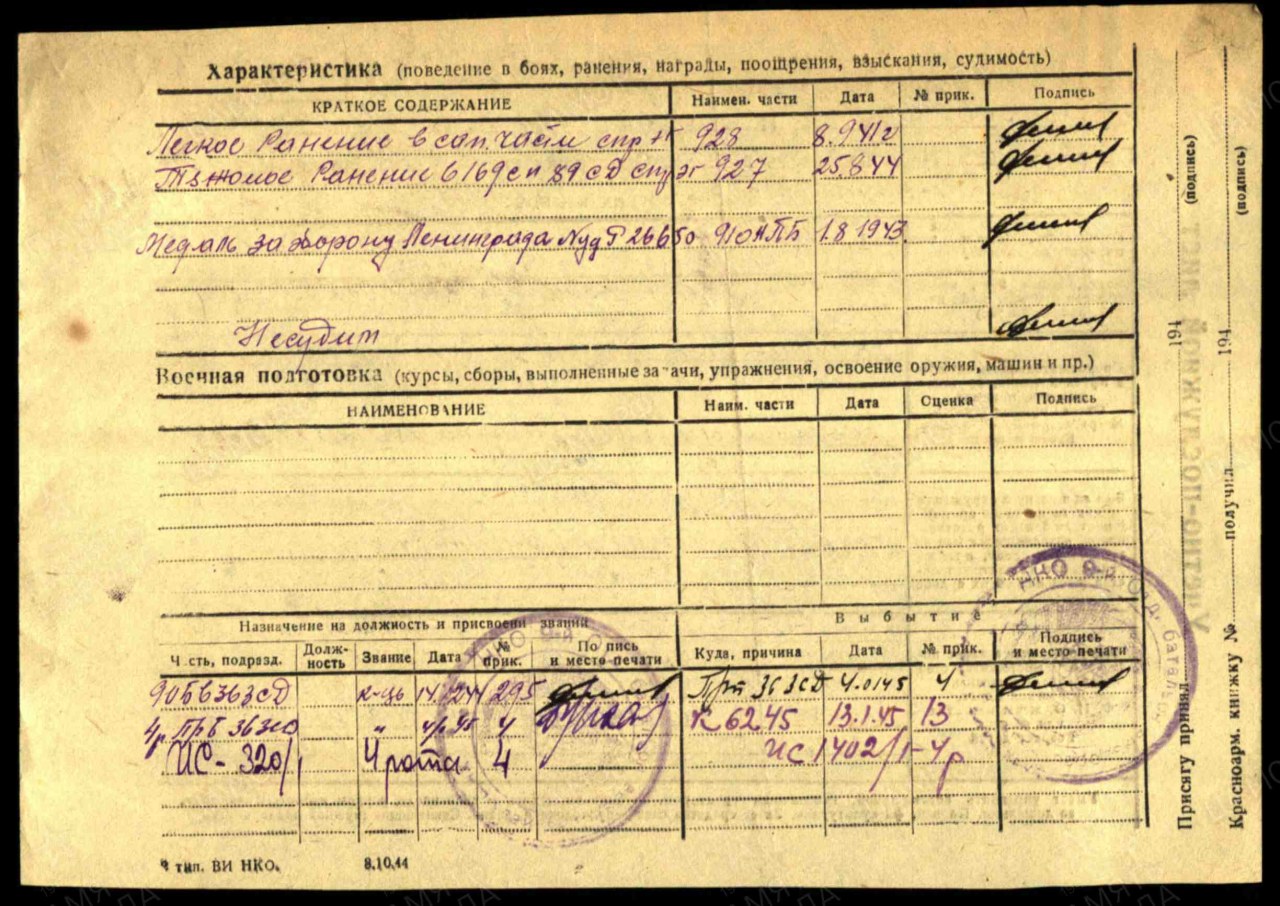 Характеристика (поведение в боях, ранения, награды, поощрения, взыскания, судимость)
КРАТКОЕ СОДЕРЖАНИЕ Наимен. части Дата № прик. Подпись
Легкое Ранение в сап. части спр 928 8.941г
Тяжолое Ранение в 169 сп 89 сд спр 927 25.8 44
Медаль за оборону Ленинграда 1.8 1943
Несудим
Военная подготовка (курсы, сборы, выполненные задачи, упражнения, освоение оружия, машин и пр.)
НАИМЕНОВАНИЕ Наим. части Дата Оценка Подпись
Назначение на должность и присвоение званий
Выбытие
Часть, подразд. Долж-ность Звание Дата № прик. Подпись и место печати Куда, причина Дата № прик. Подпись и место печати
363сд к-ць 295 363сд 4.0145 4
4р. 4 К 6245 13.1.45 13
ИС-320/1 4 рота 4 ИС 1402/1-4р
8.10.44
тип. ВИ НКО.
Присягу принял 194 (подпись)
Красноарм. книжку № получил 194 (подпись)